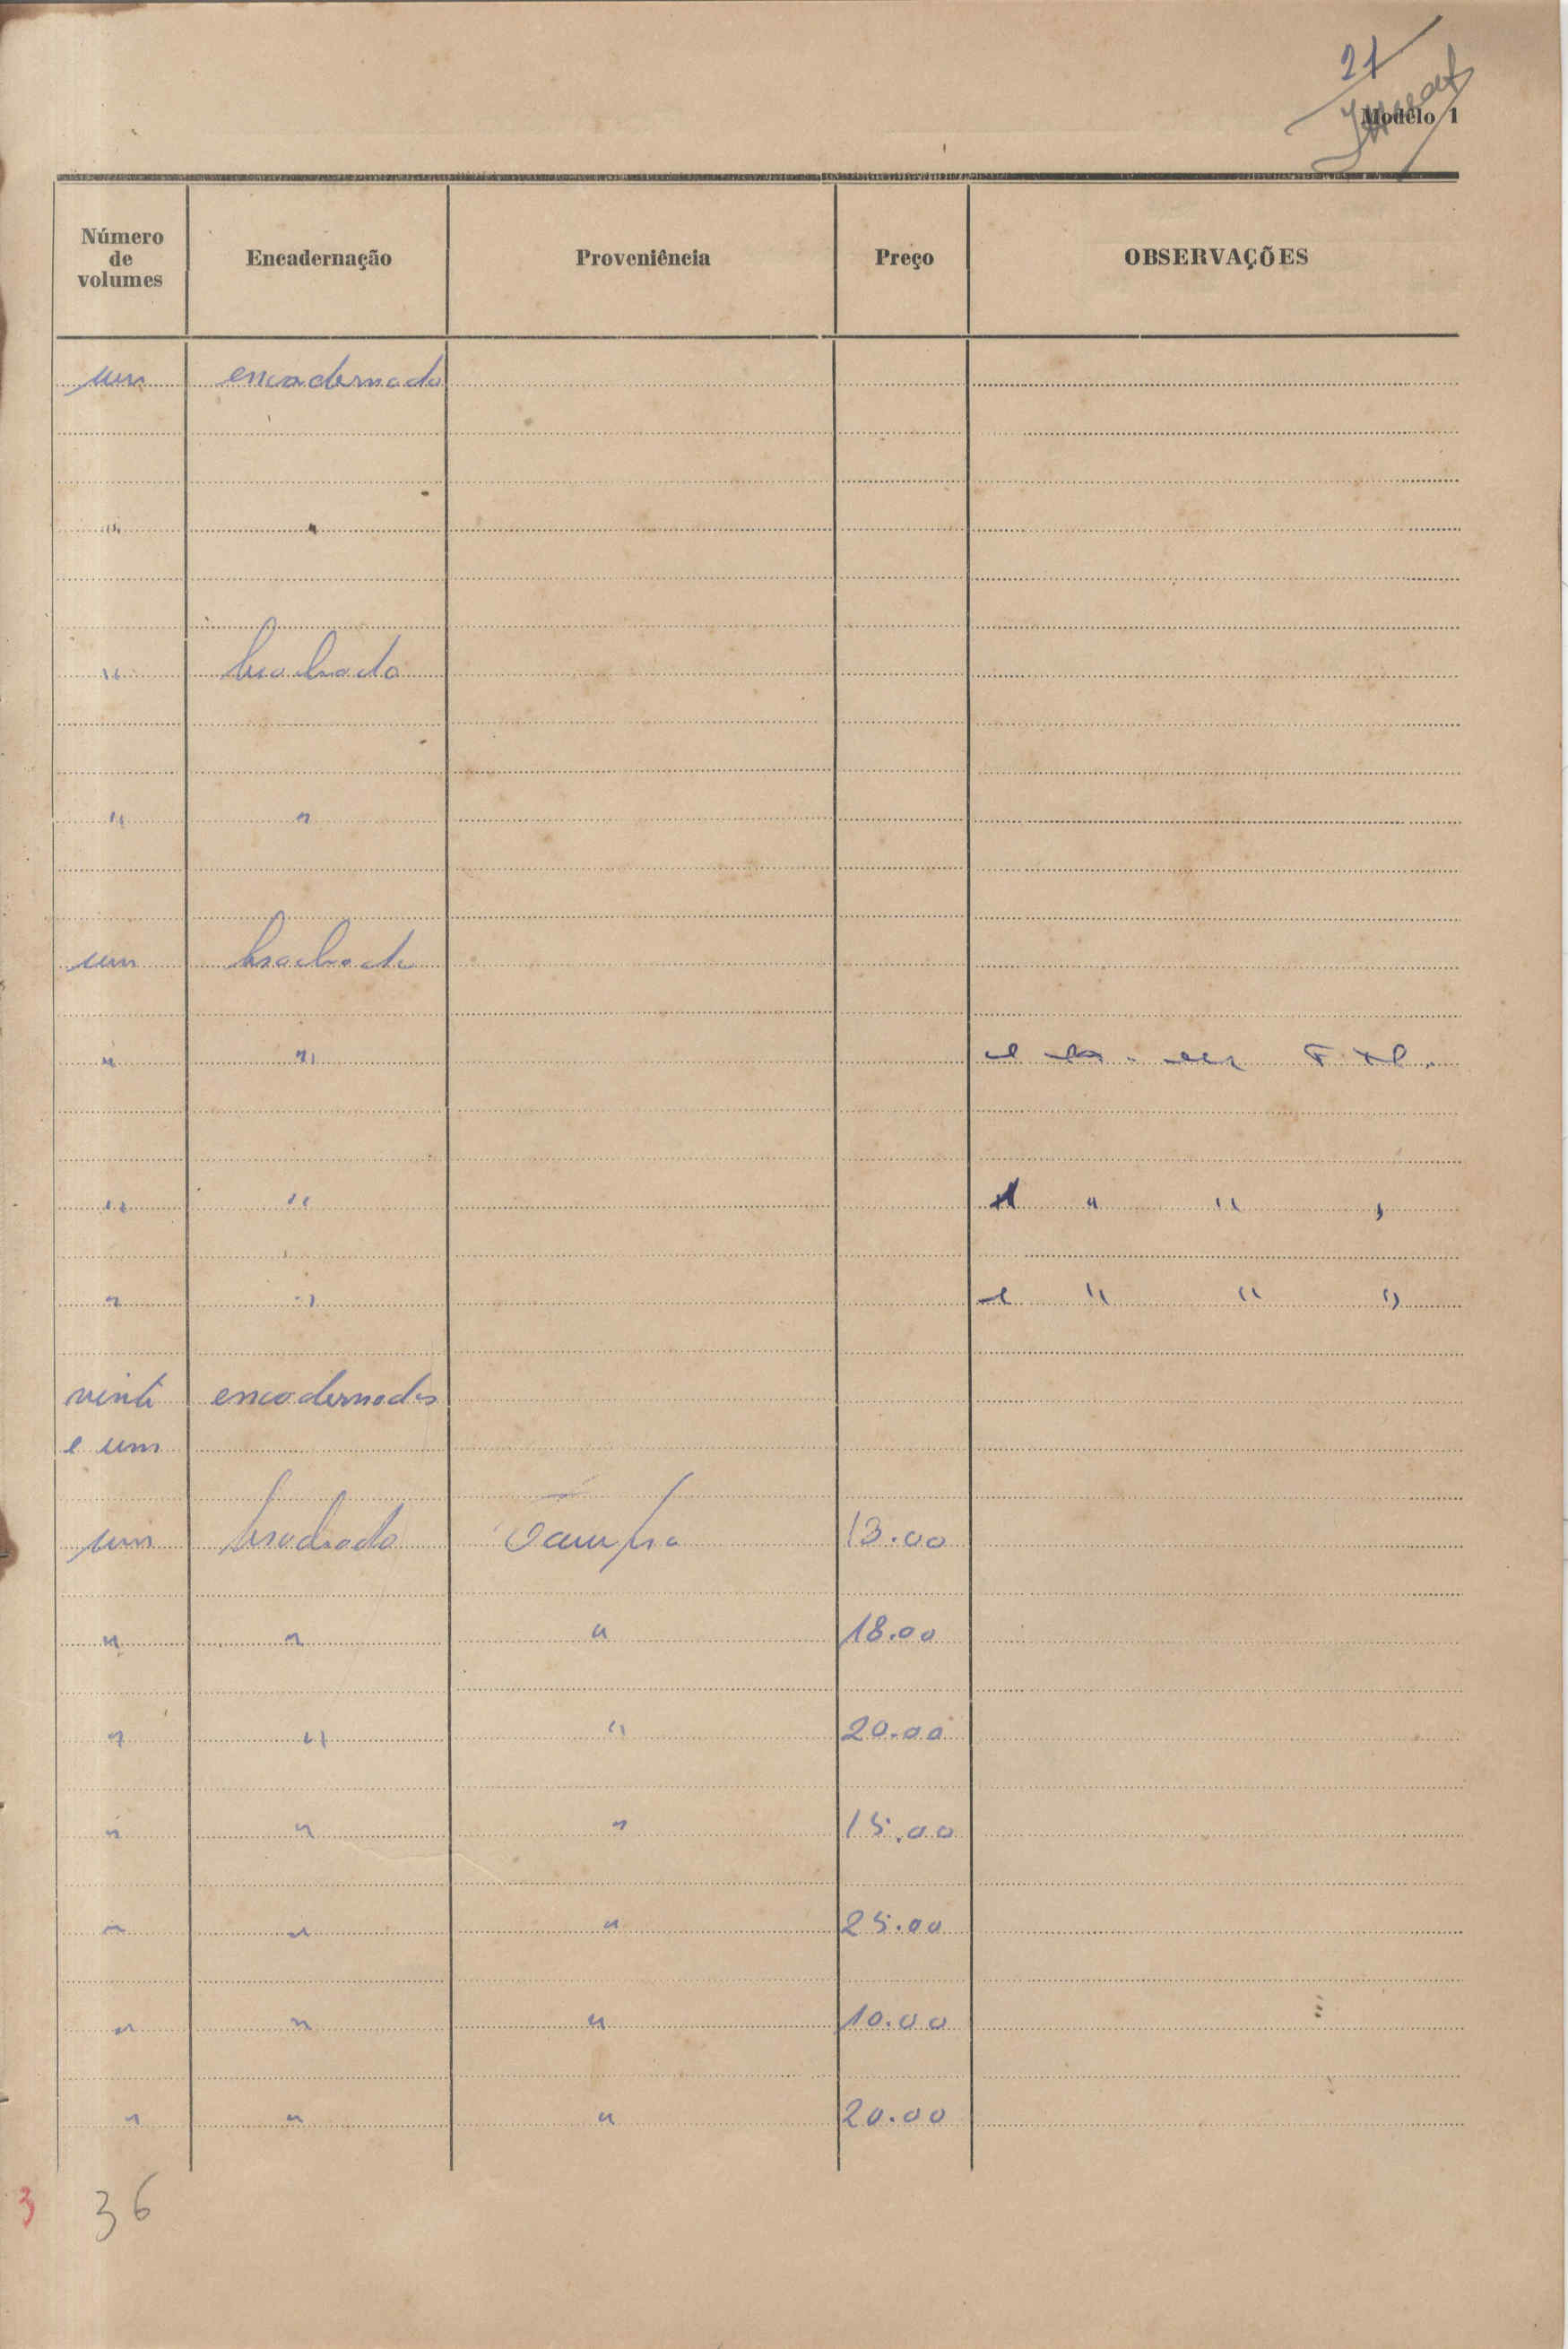 21
Modêlo 1
Número de volumes Encadernação Proveniência Preço OBSERVAÇÕES
um encadernado
" "
" brochado
" "
um brochado
" "
" " " " "
" " " " "
vinte encadernados
e um
um brochado compra 13.00
" " " 18.00
" " " 20.00
" " " 15.00
" " " 25.00
" " " 10.00
" " " 20.00
3 36